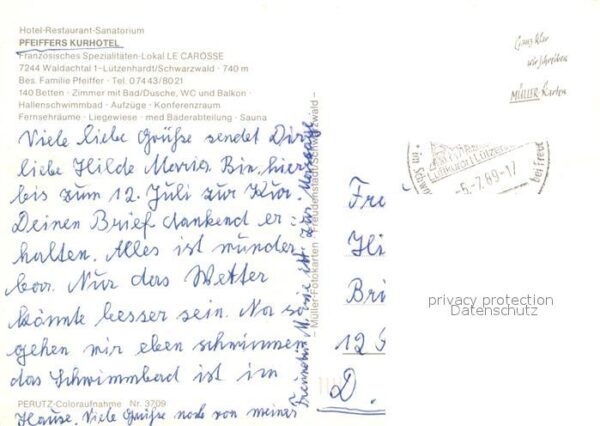 Hotel-Restaurant-Sanatorium
PFEIFFERS KURHOTEL
Französisches Spezialitäten-Lokal LE CAROSSE
7244 Waldachtal 1-Lützenhardt/Schwarzwald · 740 m
Bes. Familie Pfeiffer · Tel. 07443/8021
140 Betten · Zimmer mit Bad/Dusche, WC und Balkon ·
Hallenschwimmbad · Aufzüge · Konferenzraum
Fernsehräume · Liegewiese · med Baderabteilung · Sauna
Viele liebe Grüße sendet Dir
liebe Hilde Maria. Bin hier
bis zum 12. Juli zur Kur.
Deinen Brief dankend er-
halten. Alles ist wunder
bar. Nur das Wetter
könnte besser sein. Na so
gehen wir eben schwimmen
das Schwimmbad ist im
PERUTZ-Coloraufnahme Nr. 3709
Hause. Viele Grüße noch von meiner
Freundin M. sie ist zur Massage
– Müller-Fotokarten – Freudenstadt/Schwarzwald –
Ganz klar
wir schreiben
MÜLLER-Karten
Luftkurort Lützenh
im Schw
bei Freu
-5.-7.89-17
Fre
Hi
Bri
12
D.
privacy protection
Datenschutz